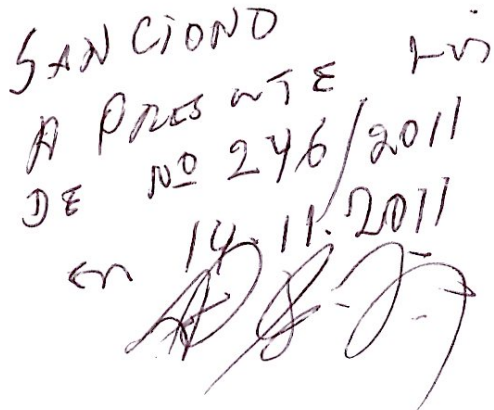 SANCIONO
A PRESENTE Lei
DE Nº 246/2011
em 14.11.2011